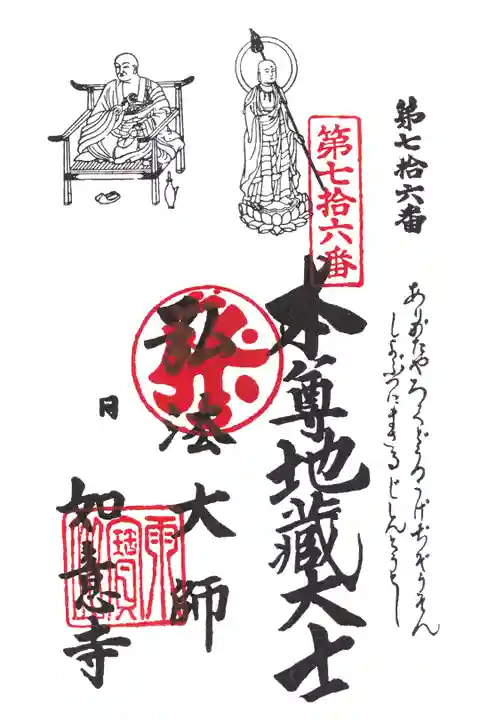 第七拾六番
ありがたやろくどうのうげぢぞうそん
しよぶつにまさるじしんとうとし
第七拾六番
本尊地蔵大士
弘法大師
月
如意寺